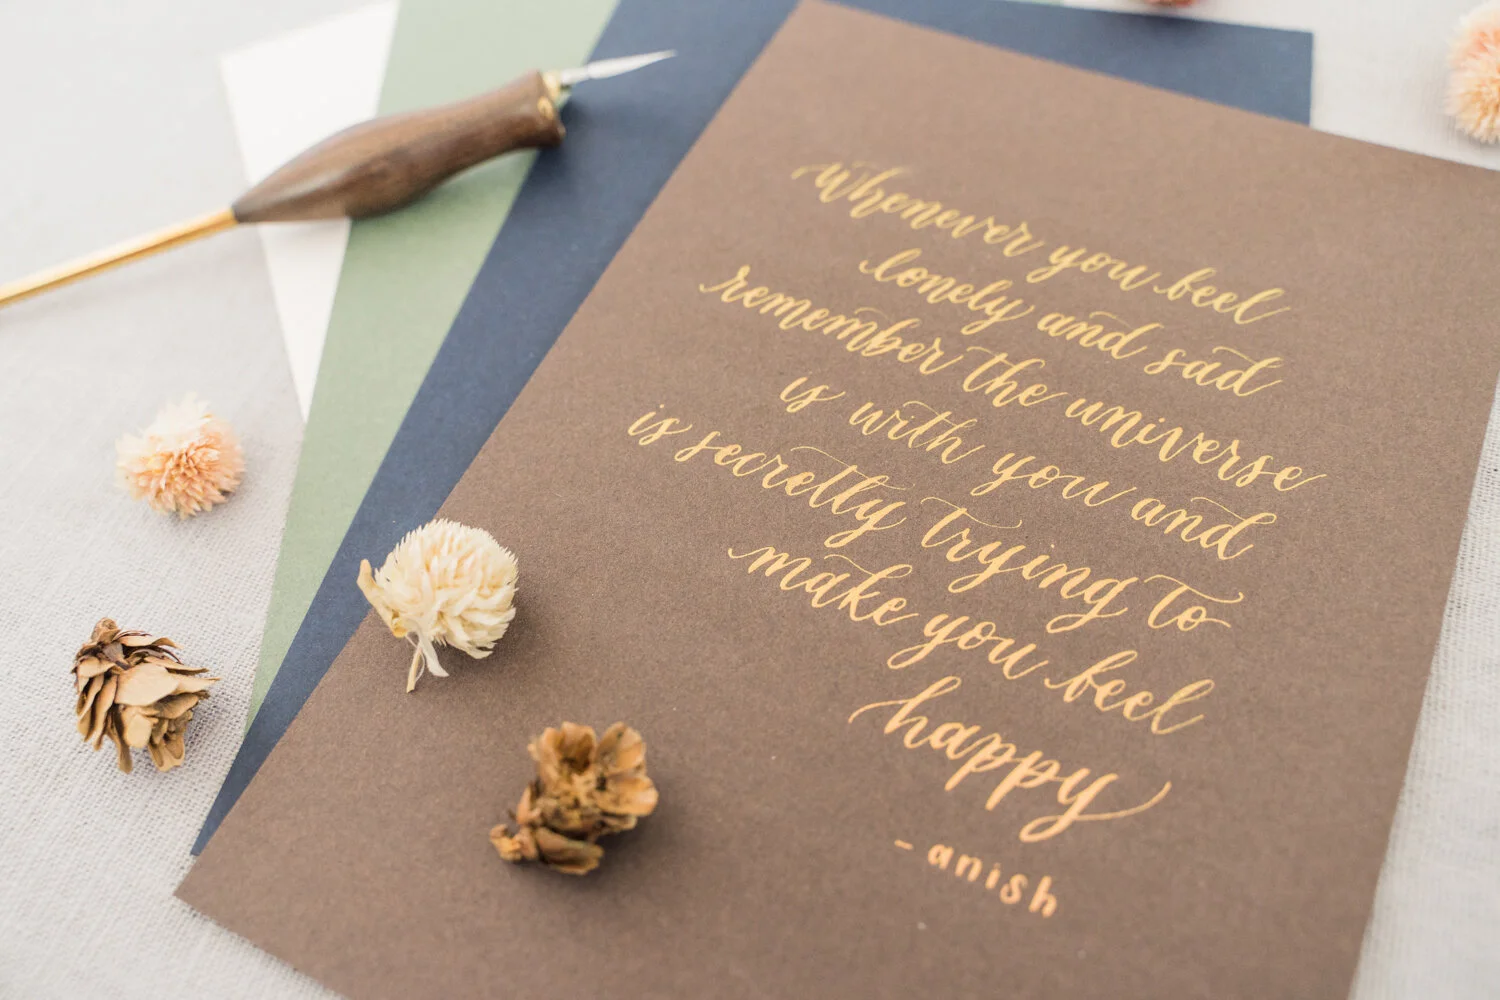 Whenever you feel
lonely and sad
remember the universe
is with you and
is secretly trying to
make you feel
happy
- anish